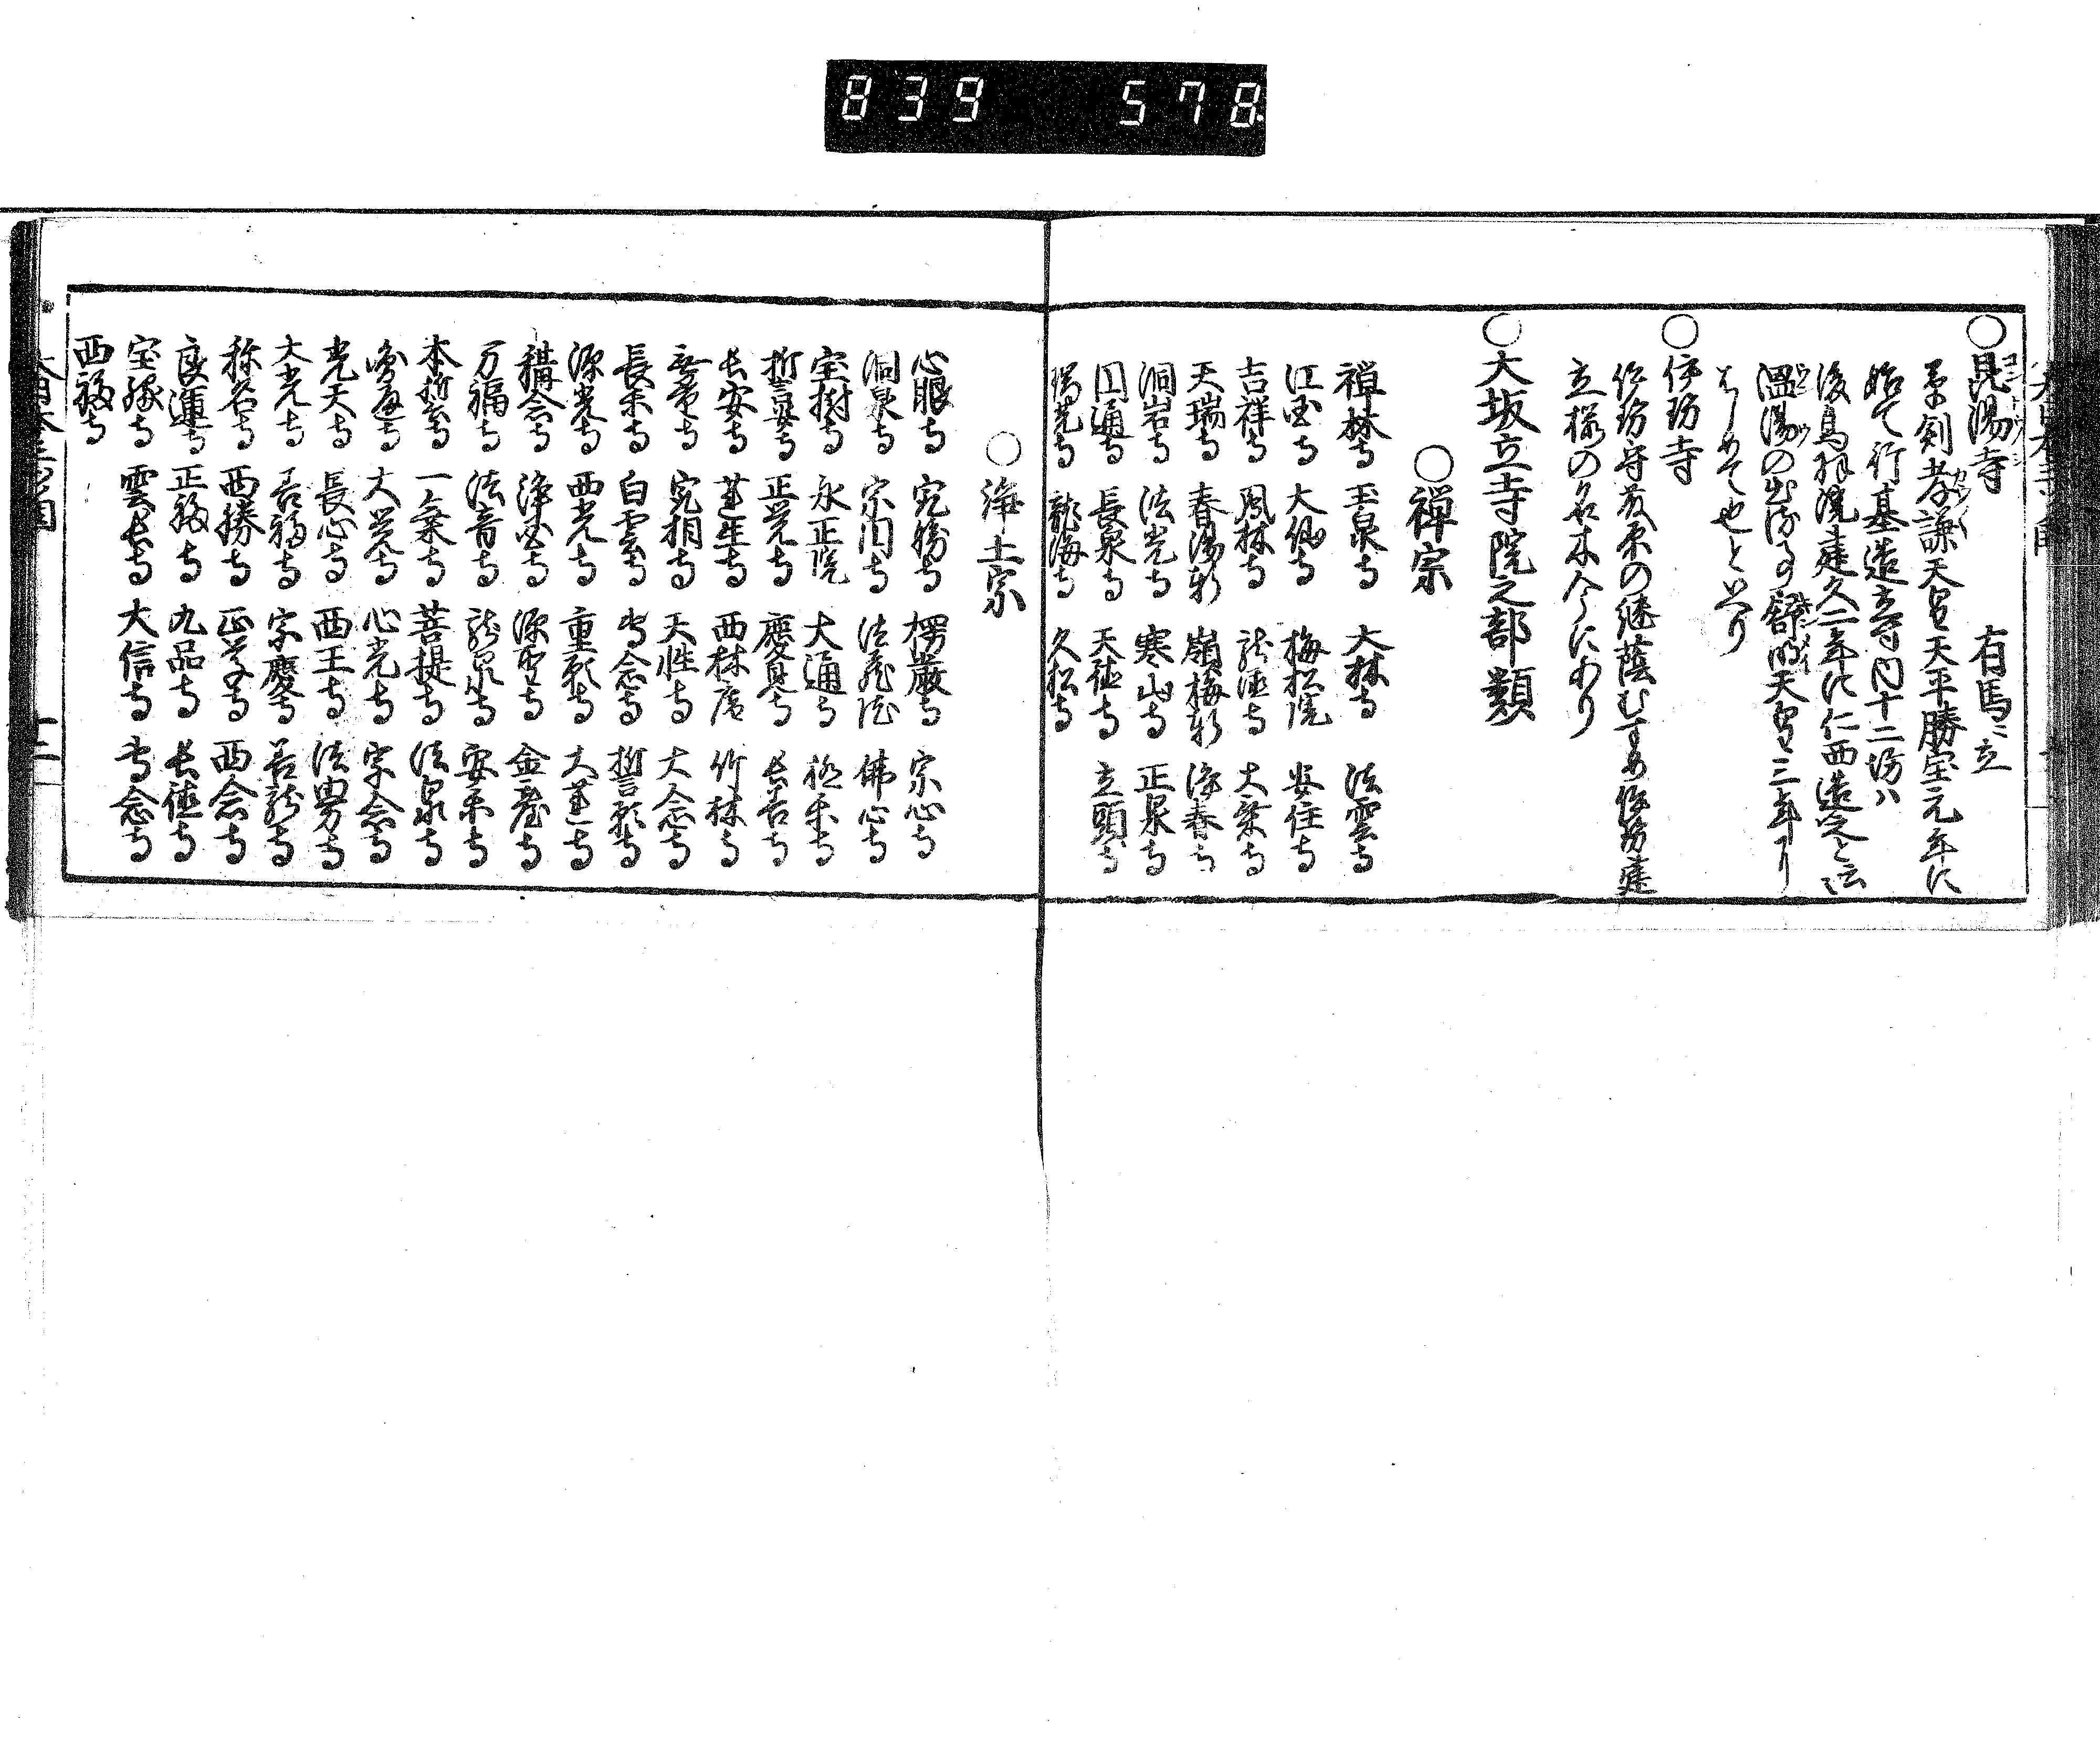 839 578
○昆陽寺 有馬ニ立
草創孝謙天皇天平勝宝元年に
始て行基造立寺内十二坊ハ
後鳥羽院建久二年に仁西造之と云
温湯の出る事舒明天皇三年より
はしめて也といへり
○伊勢寺
伊勢守藤原の継蔭むすめ伊勢建
立様の名木今にあり
○大坂立寺院之部類
○禅宗
禅林寺 玉泉寺 大林寺 法雲寺
江国寺 大仙寺 梅松院 安住寺
吉祥寺 鳳林寺 龍徳寺 大乗寺
天瑞寺 春陽軒 嶺梅軒 浄春寺
洞岩寺 法光寺 寒山寺 正泉寺
円通寺 長泉寺 天徳寺 立頭寺
瑞光寺 龍海寺 久松寺
○浄土宗
心眼寺 究勝寺 楞厳寺 宗心寺
洞泉寺 宗円寺 法蔵院 佛心寺
宝樹寺 永正院 大通寺 極楽寺
誓安寺 正覚寺 慶見寺 長善寺
長安寺 蓮生寺 西林庵 竹林寺
無量寺 究相寺 天性寺 大念寺
長楽寺 白雲寺 専念寺 誓願寺
源光寺 西光寺 重願寺 大蓮寺
称念寺 浄国寺 源聖寺 金臺寺
万福寺 法音寺 龍泉寺 安楽寺
本誓寺 一乗寺 菩提寺 法泉寺
大覚寺 心光寺 宗念寺
光天寺 長心寺 西王寺 法界寺
大光寺 善福寺 宗慶寺 善龍寺
称名寺 西勝寺 正覚寺 西念寺
良運寺 正福寺 九品寺 長徳寺
宝縁寺 雲長寺 大信寺 専念寺
西福寺